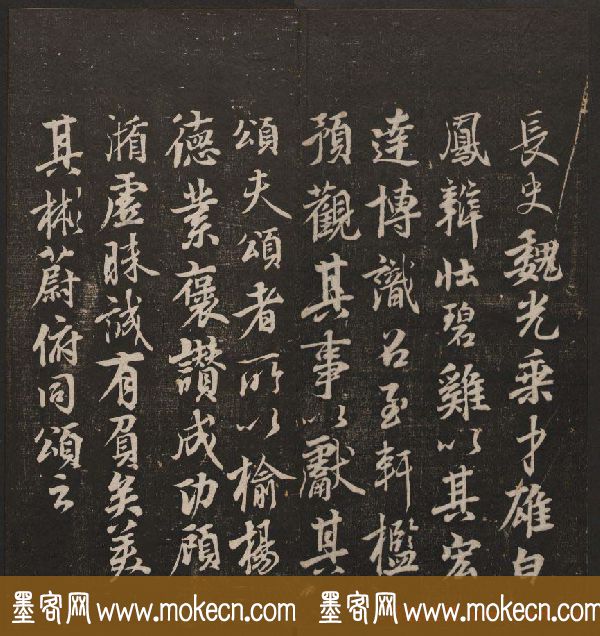 長史魏光乘才雄白
鳳辯壯碧雞以其宏
達博識召至軒檻
預觀其事以獻其
頌夫頌者所以揄揚
德業褒讚成功顧
循虛昧誠有負矣美
其彬蔚俯同頌云
墨客网 www.mokecn.com 墨客网 www.mokecn.com